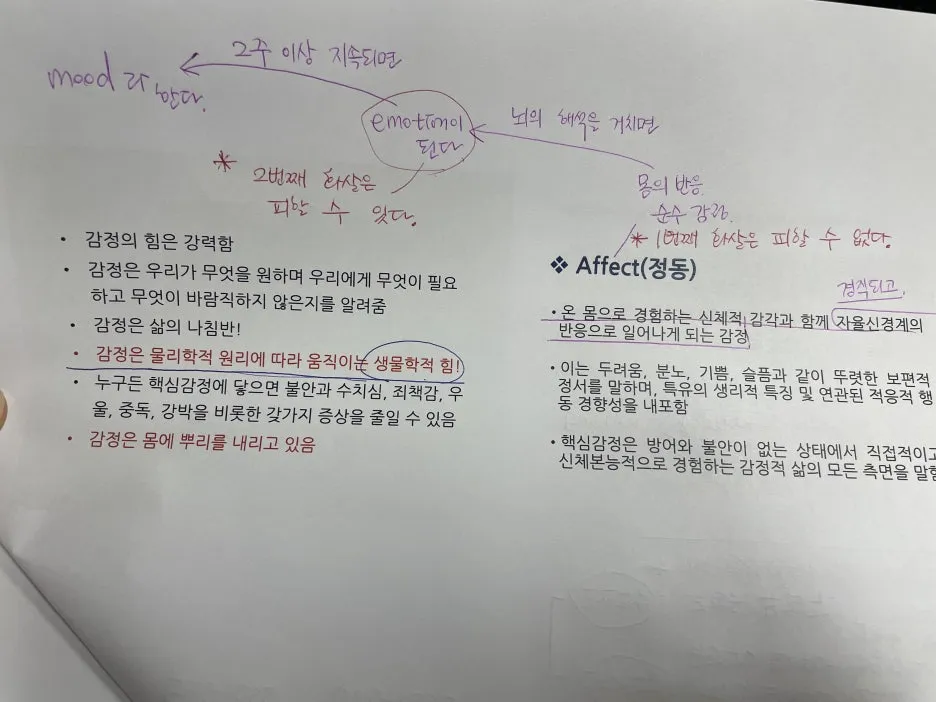 2주 이상 지속되면
mood 라 한다.
emotion이
된다
뇌의 해석을 거치면
* 2번째 화살은
피할 수 있다.
몸의 반응.
순수 감정.
* 1번째 화살은 피할 수 없다.
• 감정의 힘은 강력함
• 감정은 우리가 무엇을 원하며 우리에게 무엇이 필요
하고 무엇이 바람직하지 않은지를 알려줌
• 감정은 삶의 나침반!
• 감정은 물리학적 원리에 따라 움직이는 생물학적 힘!
• 누구든 핵심감정에 닿으면 불안과 수치심, 죄책감, 우
울, 중독, 강박을 비롯한 갖가지 증상을 줄일 수 있음
• 감정은 몸에 뿌리를 내리고 있음
❖ Affect(정동)
경직되고.
• 온 몸으로 경험하는 신체적 감각과 함께 자율신경계의
반응으로 일어나게 되는 감정
• 이는 두려움, 분노, 기쁨, 슬픔과 같이 뚜렷한 보편적
정서를 말하며, 특유의 생리적 특징 및 연관된 적응적 행
동 경향성을 내포함
• 핵심감정은 방어와 불안이 없는 상태에서 직접적이고
신체본능적으로 경험하는 감정적 삶의 모든 측면을 말함